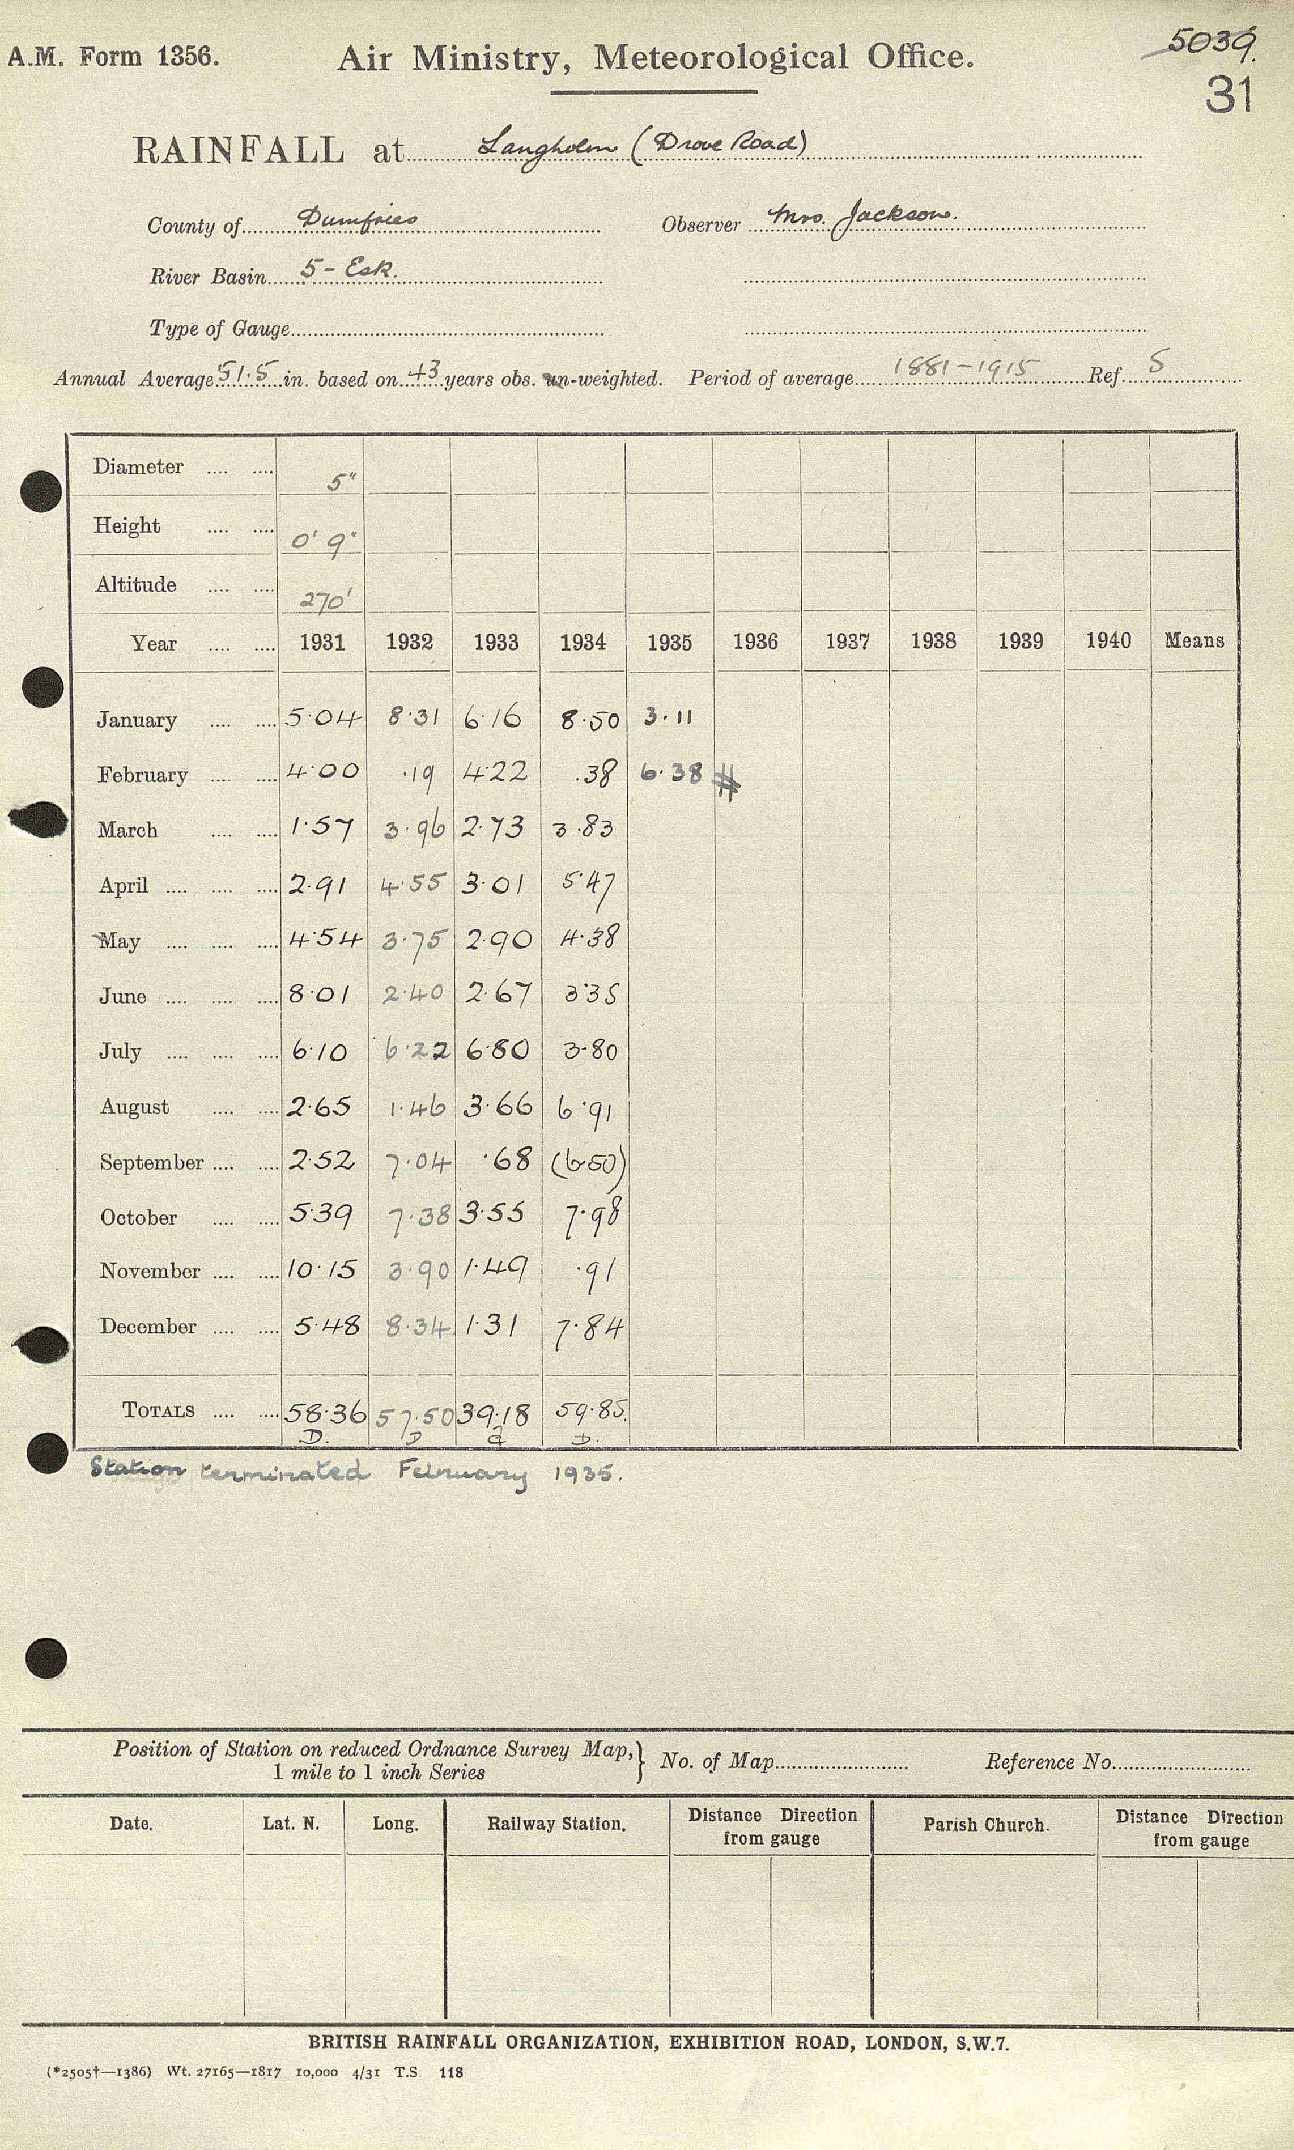 A.M. Form 1356. Air Ministry, Meteorological Office. 5039.
31
RAINFALL at Langholm (Drove Road)
County of Dumfries Observer Mrs. Jackson.
River Basin 5 - Esk.
Type of Gauge
Annual Average 51.5 in. based on 43 years obs. un-weighted. Period of average 1881-1915 Ref. S
Diameter 5"
Height 0' 9"
Altitude 270'
Year 1931 1932 1933 1934 1935 1936 1937 1938 1939 1940 Means
January 5.04 8.31 6.16 8.50 3.11
February 4.00 .19 4.22 .38 6.38 #
March 1.57 3.96 2.73 3.83
April 2.91 4.55 3.01 5.47
May 4.54 3.75 2.90 4.38
June 8.01 2.40 2.67 3.35
July 6.10 6.22 6.80 3.80
August 2.65 1.46 3.66 6.91
September 2.52 7.04 .68 (6.50)
October 5.39 7.38 3.55 7.98
November 10.15 3.90 1.49 .91
December 5.48 8.34 1.31 7.84
TOTALS 58.36 57.50 39.18 59.85.
D. D D.
Station terminated February 1935.
Position of Station on reduced Ordnance Survey Map, } No. of Map Reference No.
1 mile to 1 inch Series
Date. Lat. N. Long. Railway Station. Distance Direction from gauge Parish Church. Distance Direction from gauge
BRITISH RAINFALL ORGANIZATION, EXHIBITION ROAD, LONDON, S.W.7.
(*2505†—1386) Wt. 27165—1817 10,000 4/31 T.S. 118